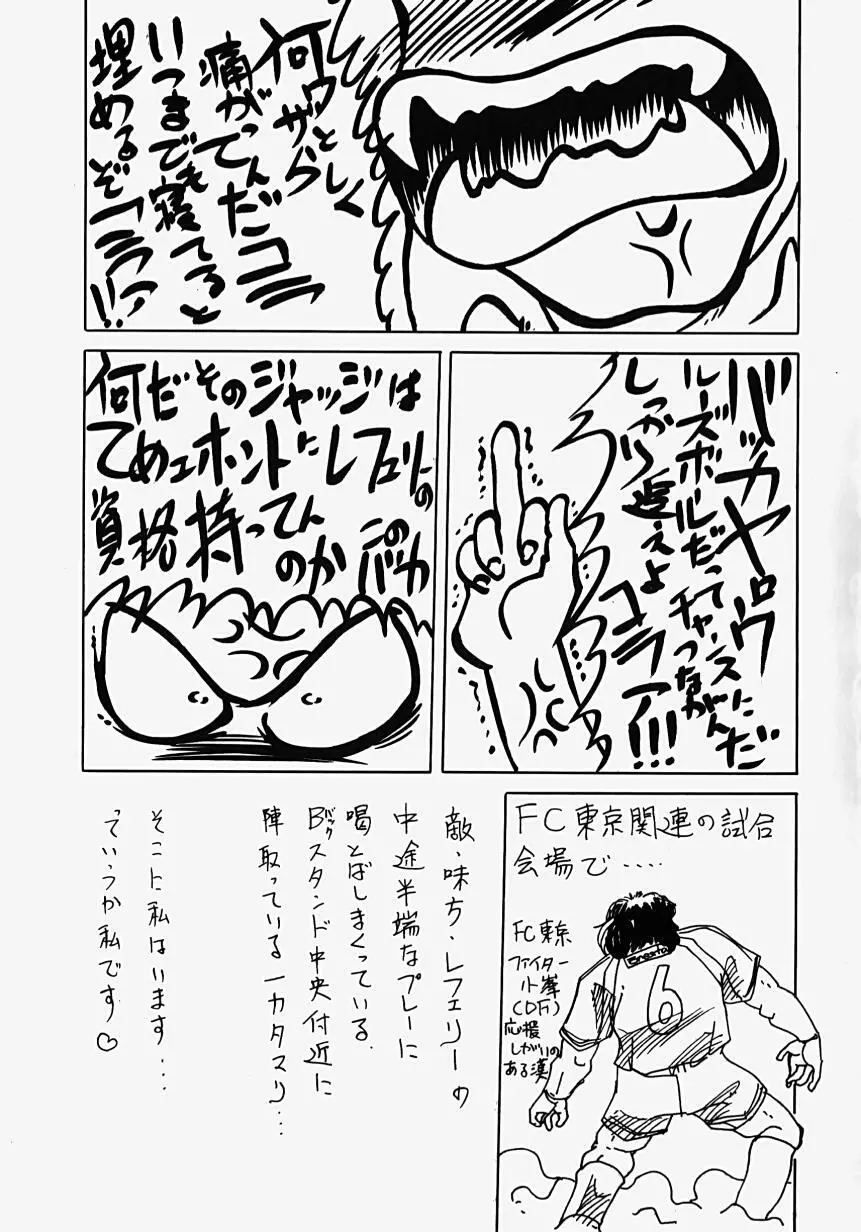 何ウザらしく
痛がってんだコラ
いつまでも寝てると
埋めるぞコラァ!!
バッカヤロウ
ルーズボールだってチャンスにつながんだ
しっかり追えよ
コラァ!!!
何だそのジャッジは
てめェホントにレフェリーの
資格持ってんのか
このバカ
FC東京関連の試合
会場で‥‥‥
FC東京
ファイター
小峯
(DF)
応援
しがいの
ある漢
6
敵・味方・レフェリーの
中途半端なプレーに
喝とばしまくっている
Bバックスタンド中央付近に
陣取っている一カタマリ…
そこに私はいます…
っていうか私です♡